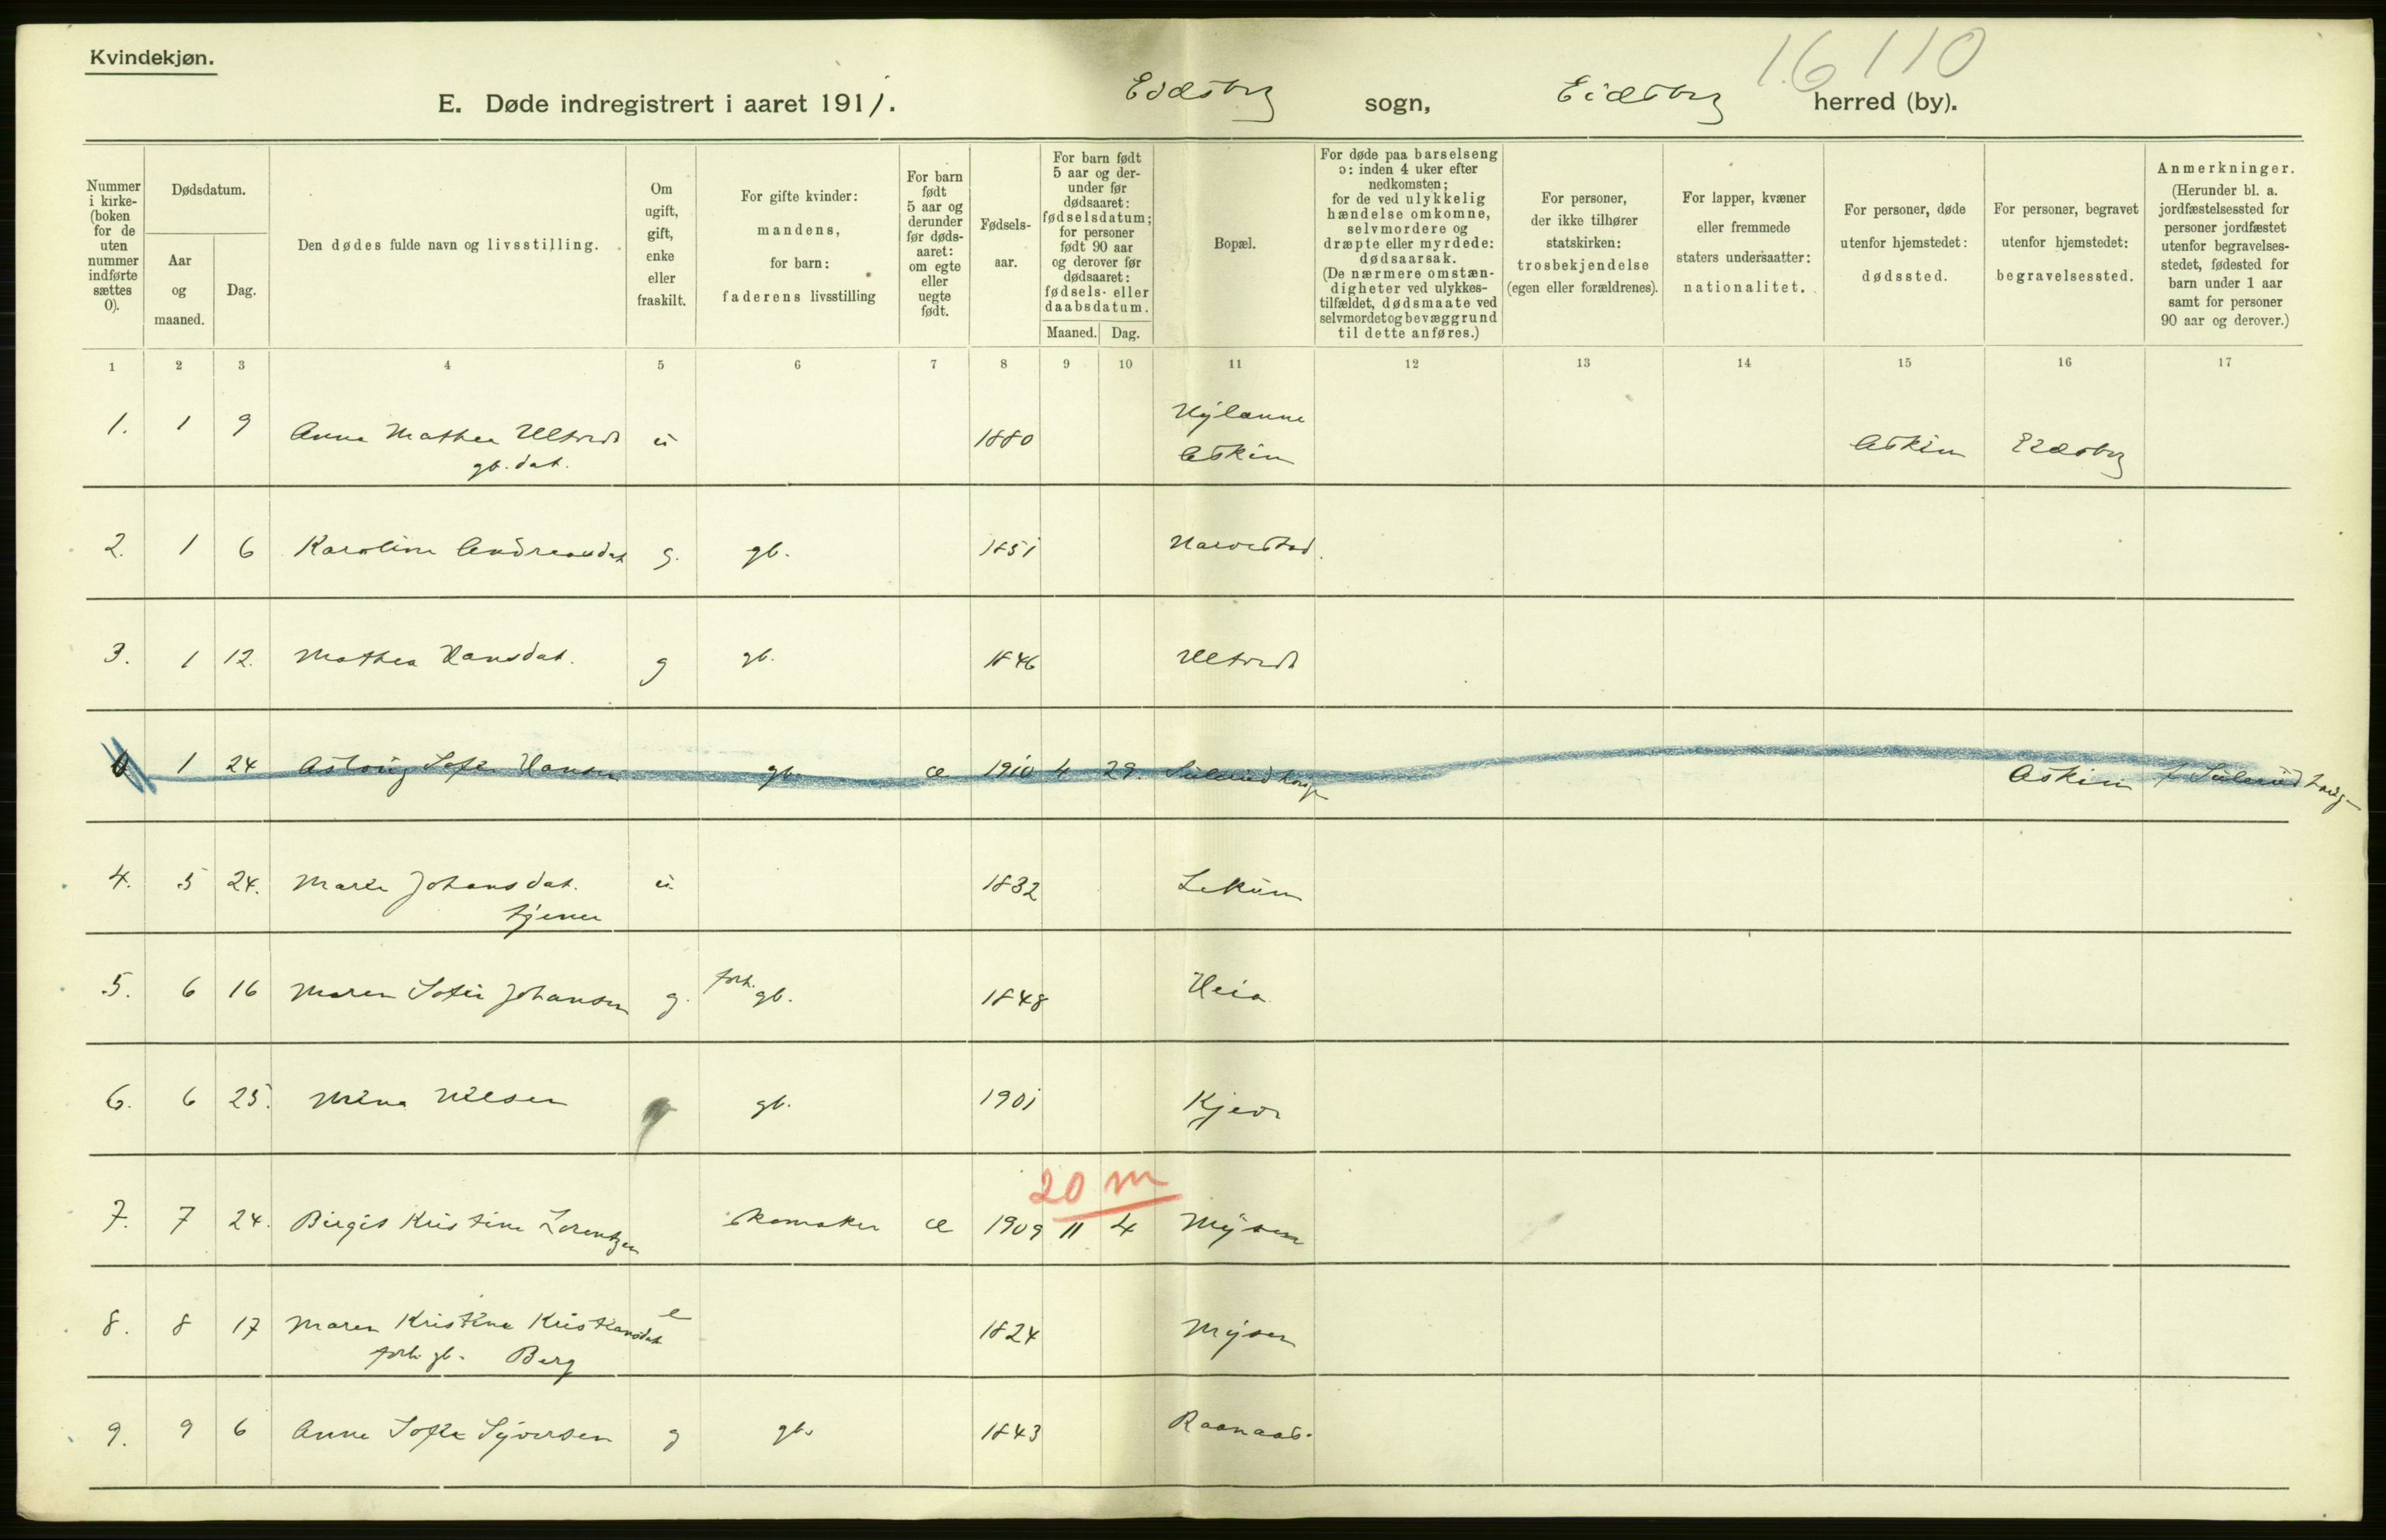 Kvindekjøn.
16110
E. Døde indregistrert i aaret 1911. Eidsberg sogn, Eidsberg herred (by).
Nummer i kirke-(boken for de uten nummer indførte sættes 0).
Dødsdatum.
Aar og maaned.
Dag.
Den dødes fulde navn og livsstilling.
Om ugift, gift, enke eller fraskilt.
For gifte kvinder: mandens, for barn: faderens livsstilling
For barn født 5 aar og derunder før døds-aaret: om egte eller uegte født.
Fødsels-aar.
For barn født 5 aar og der-under før dødsaaret: fødselsdatum; for personer født 90 aar og derover før dødsaaret: fødsels- eller daabsdatum.
Maaned. Dag.
Bopæl.
For døde paa barselseng ɔ: inden 4 uker efter nedkomsten; for de ved ulykkelig hændelse omkomne, selvmordere og dræpte eller myrdede: dødsaarsak. (De nærmere omstæn-digheter ved ulykkes-tilfældet, dødsmaate ved selvmordet og bevæggrund til dette anføres.)
For personer, der ikke tilhører statskirken: trosbekjendelse (egen eller forældrenes).
For lapper, kvæner eller fremmede staters undersaatter: nationalitet.
For personer, døde utenfor hjemstedet: dødssted.
For personer, begravet utenfor hjemstedet: begravelsessted.
Anmerkninger. (Herunder bl. a. jordfæstelsessted for personer jordfæstet utenfor begravelses-stedet, fødested for barn under 1 aar samt for personer 90 aar og derover.)
1 2 3 4 5 6 7 8 9 10 11 12 13 14 15 16 17
1. 1 9 Anna Mathea Ultvedt gb. dat. u 1880 Askim Askim Eidsberg
2. 1 6 Karoline Andreasdat g. gb. 1851
3. 1 12. Mathea Hansdat. g gb. 1846 Ultvedt
0 1 24 Astrid Sofie Hansen gb. æ 1910 4 29. Askim
4. 5 24. Marte Johansdat. tjener u. 1832 Lekum
5. 6 16 Maren Sofie Johansen g. forh. gb. 1848 Heia
6. 6 25. Mina Nilsen gb. 1901
20 m
7. 7 24. Birgit Kristine Lorentzen skomaker æ 1909 11 4 Mysen
8. 8 17 Maren Kristine Kristiansdat e 1824 Mysen
forh. gb. Berg
9. 9 6 Anne Sofie Syversen g gb. 1843 Raanaas.